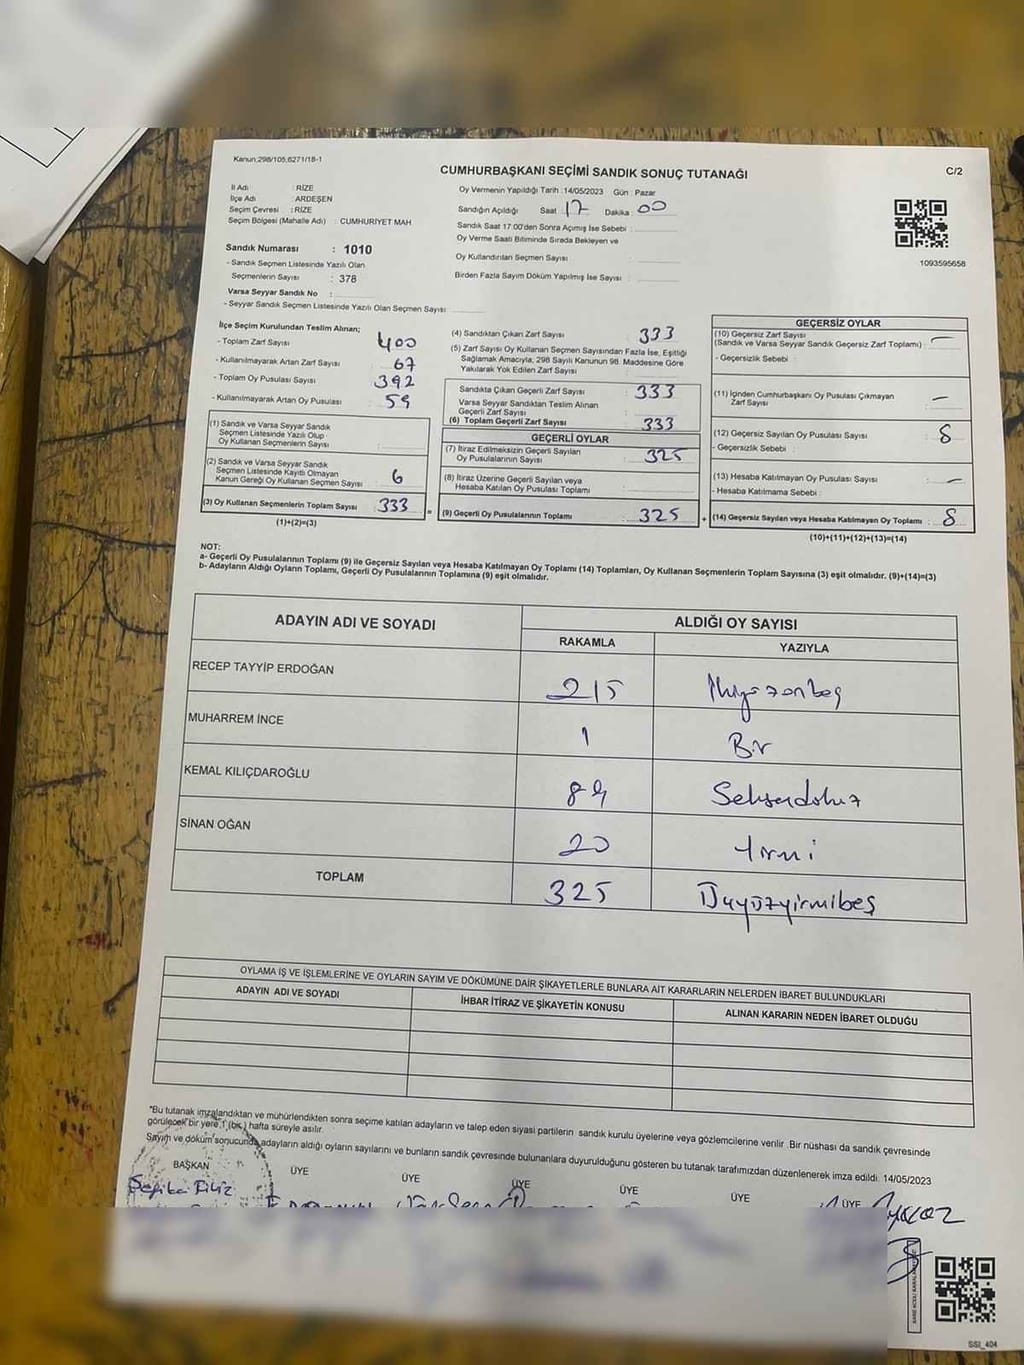 Kanun;298/105,6271/18-1
CUMHURBAŞKANI SEÇİMİ SANDIK SONUÇ TUTANAĞI
C/2
İl Adı : RİZE
İlçe Adı : ARDEŞEN
Seçim Çevresi : RİZE
Seçim Bölgesi (Mahalle Adı) : CUMHURİYET MAH
Sandık Numarası : 1010
- Sandık Seçmen Listesinde Yazılı Olan
Seçmenlerin Sayısı : 378
Varsa Seyyar Sandık No :
- Seyyar Sandık Seçmen Listesinde Yazılı Olan Seçmen Sayısı
Oy Vermenin Yapıldığı Tarih :14/05/2023 Gün : Pazar
Sandığın Açıldığı Saat 17 Dakika 00
Sandık Saat 17:00'den Sonra Açımış İse Sebebi :
Oy Verme Saati Bitiminde Sırada Bekleyen ve
Oy Kullandırılan Seçmen Sayısı :
Birden Fazla Sayım Döküm Yapılmış İse Sayısı :
1093595658
İlçe Seçim Kurulundan Teslim Alınan;
- Toplam Zarf Sayısı : 400
- Kullanılmayarak Artan Zarf Sayısı : 67
- Toplam Oy Pusulası Sayısı : 392
- Kullanılmayarak Artan Oy Pusulası : 59
(1) Sandık ve Varsa Seyyar Sandık
Seçmen Listesinde Yazılı Olup
Oy Kullanan Seçmenlerin Sayısı :
(2) Sandık ve Varsa Seyyar Sandık
Seçmen Listesinde Kayıtlı Olmayan
Kanun Gereği Oy Kullanan Seçmen Sayısı : 6
(3) Oy Kullanan Seçmenlerin Toplam Sayısı : 333
(1)+(2)=(3)
(4) Sandıktan Çıkan Zarf Sayısı : 333
(5) Zarf Sayısı Oy Kullanan Seçmen Sayısından Fazla İse, Eşitliği
Sağlamak Amacıyla, 298 Sayılı Kanunun 98. Maddesine Göre
Yakılarak Yok Edilen Zarf Sayısı :
Sandıkta Çıkan Geçerli Zarf Sayısı : 333
Varsa Seyyar Sandıktan Teslim Alınan
Geçerli Zarf Sayısı :
(6) Toplam Geçerli Zarf Sayısı : 333
GEÇERLİ OYLAR
(7) İtiraz Edilmeksizin Geçerli Sayılan
Oy Pusulalarının Sayısı : 325
(8) İtiraz Üzerine Geçerli Sayılan veya
Hesaba Katılan Oy Pusulası Toplamı :
= (9) Geçerli Oy Pusulalarının Toplamı : 325
GEÇERSİZ OYLAR
(10) Geçersiz Zarf Sayısı
(Sandık ve Varsa Seyyar Sandık Geçersiz Zarf Toplamı) : —
- Geçersizlik Sebebi :
(11) İçinden Cumhurbaşkanı Oy Pusulası Çıkmayan
Zarf Sayısı : —
(12) Geçersiz Sayılan Oy Pusulası Sayısı : 8
- Geçersizlik Sebebi :
(13) Hesaba Katılmayan Oy Pusulası Sayısı : —
- Hesaba Katılmama Sebebi :
+ (14) Geçersiz Sayılan veya Hesaba Katılmayan Oy Toplamı : 8
(10)+(11)+(12)+(13)=(14)
NOT:
a- Geçerli Oy Pusulalarının Toplamı (9) ile Geçersiz Sayılan veya Hesaba Katılmayan Oy Toplamı (14) Toplamları, Oy Kullanan Seçmenlerin Toplam Sayısına (3) eşit olmalıdır. (9)+(14)=(3)
b- Adayların Aldığı Oyların Toplamı, Geçerli Oy Pusulalarının Toplamına (9) eşit olmalıdır.
ADAYIN ADI VE SOYADI
ALDIĞI OY SAYISI
RAKAMLA YAZIYLA
RECEP TAYYİP ERDOĞAN 215 İkiyüzonbeş
MUHARREM İNCE 1 Bir
KEMAL KILIÇDAROĞLU 89 Seksendokuz
SİNAN OĞAN 20 Yirmi
TOPLAM 325 Üçyüzyirmibeş
OYLAMA İŞ VE İŞLEMLERİNE VE OYLARIN SAYIM VE DÖKÜMÜNE DAİR ŞİKAYETLERLE BUNLARA AİT KARARLARIN NELERDEN İBARET BULUNDUKLARI
ADAYIN ADI VE SOYADI
İHBAR İTİRAZ VE ŞİKAYETİN KONUSU
ALINAN KARARIN NEDEN İBARET OLDUĞU
"Bu tutanak imzalandıktan ve mühürlendikten sonra seçime katılan adayların ve talep eden siyasi partilerin sandık kurulu üyelerine veya gözlemcilerine verilir. Bir nüshası da sandık çevresinde
görülecek bir yere 1 (bir) hafta süreyle asılır.
Sayım ve döküm sonucunda adayların aldığı oyların sayılarını ve bunların sandık çevresinde bulunanlara duyurulduğunu gösteren bu tutanak tarafımızdan düzenlenerek imza edildi. 14/05/2023
BAŞKAN ÜYE ÜYE ÜYE ÜYE ÜYE ÜYE
SSİ_404